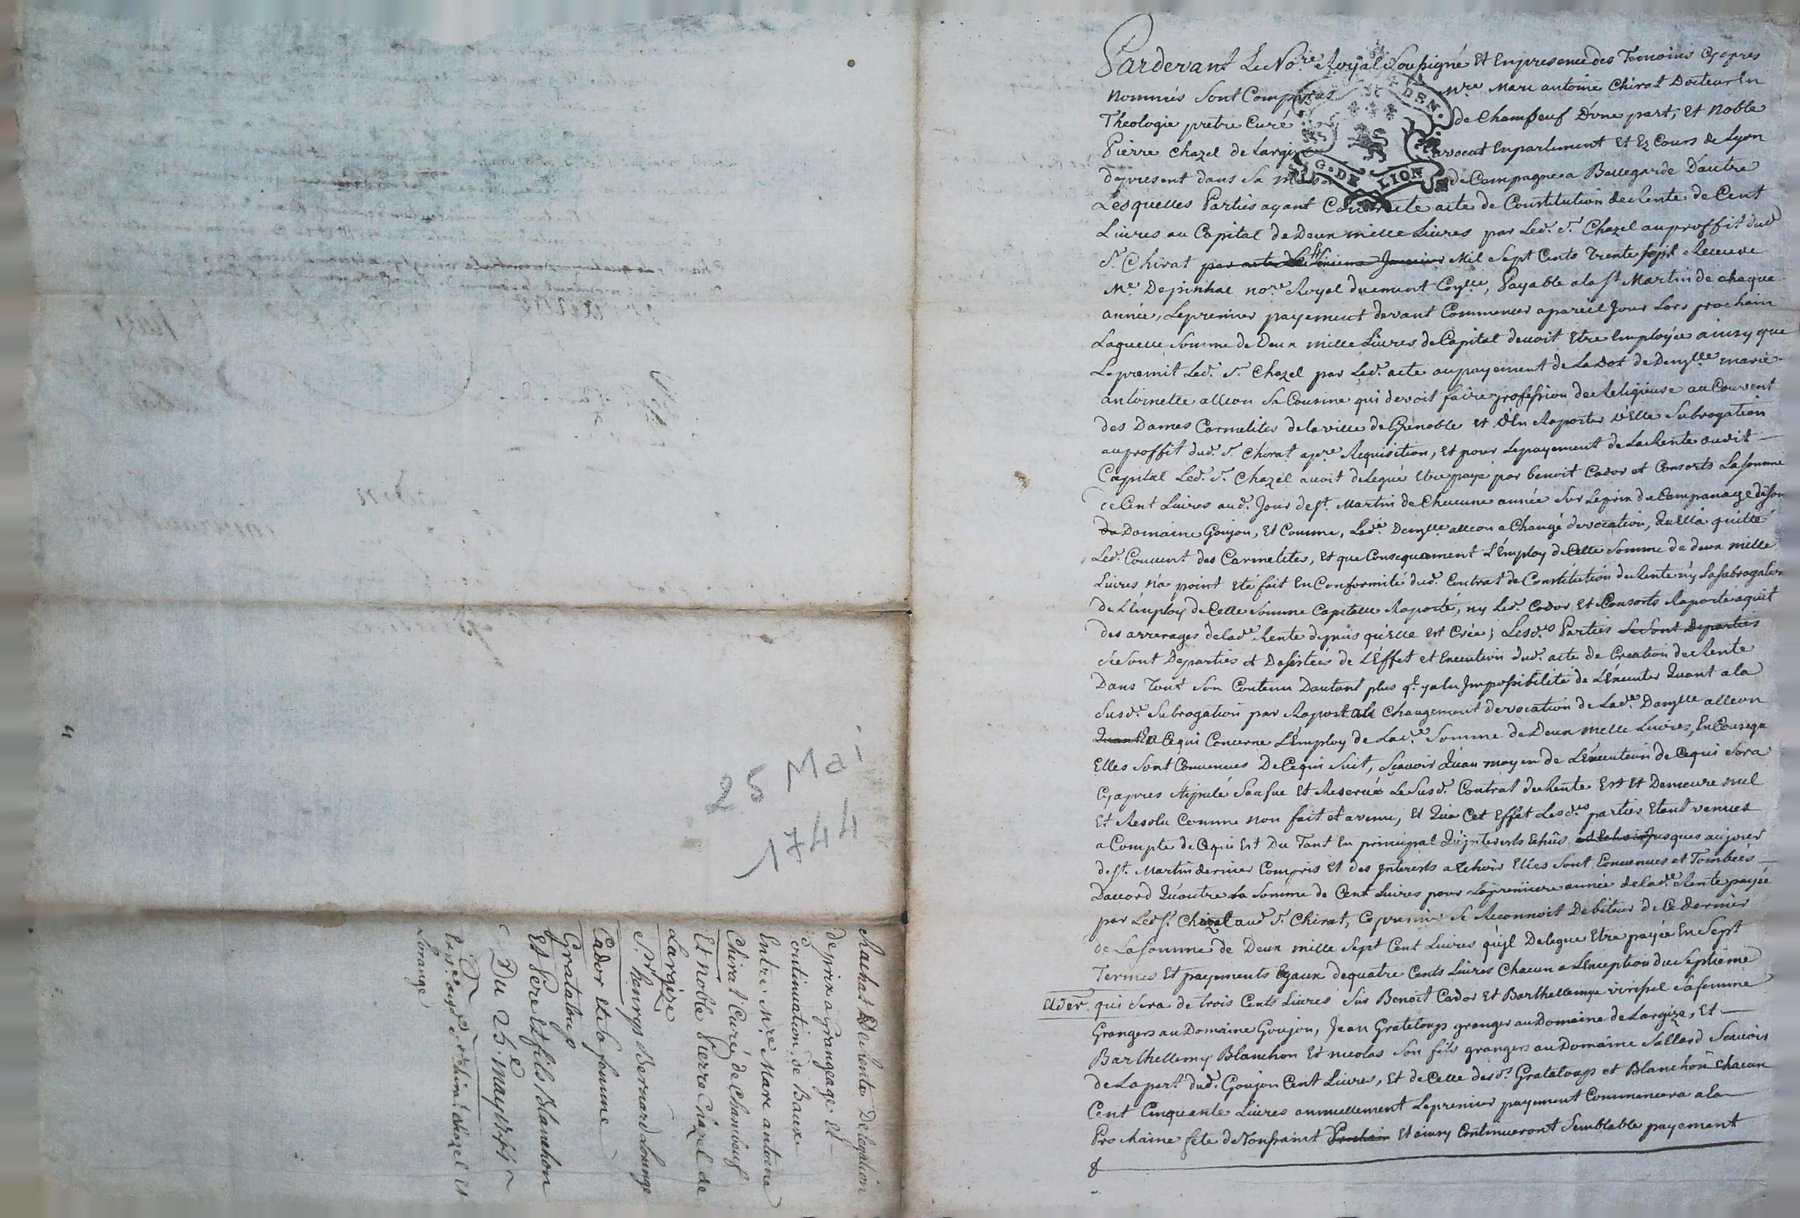 Pardevant Le No.re Royal Soussigné Et En presence des Temoins Cyapres
nommés Sont Comparus M.re Marc antoine Chirat Docteur En
Theologie pretre Curé de Chambeuf D'une part, Et Noble
Pierre Chazel de Largize avocat En parlement Et Ez Cours de Lyon
de present dans Sa maison de Campagne a Bellegarde D'autre
Lesquelles Parties ayant Contracté acte de Constitution de Rente de Cent
Livres au Capital de Deux mille Livres par Led. S.r Chazel au proffit dud
S.r Chirat par acte Mil Sept Cents trente sept Receu
M.e Depinhac no.re Royal duement , Payable a la S.t Martin de chaque
année, Le premier payement devant Commencer a pareil Jour Lors prochain
Laquelle Somme de Deux mille Livres de Capital devoit Etre Employée ainsy que
Le promit Led. S.r Chazel par Led. acte au payement de La Dot de Demlle marie
antoinette alleon Sa Cousine qui devoit faire profession de Religieuse au Couvent
des Dames Carmelites de la ville de Grenoble et d'En Raporter Subrogation
au proffit dud. S.r Chirat a p.re Requisition, Et pour Le payement de La Rente dudit
Capital Led. S.r Chazel avoit delegué Etre payé par benoit Cador et Consorts La somme
de Cent Livres aud. Jour de S.t Martin de Chacune année Sur Le prix de de Son
Domaine Goujon, Et Comme, Lad.e Demlle alleon a Changé de vocation, qu'Ella quitté
Led. Couvent des Carmelites, Et que Consequamment L'Employ de Cette Somme de deux mille
Livres n'a point Eté fait En Conformité dud. Contrat de Constitution de Rente ny La Subrogation
de L'Employ de Cette Somme Capitalle Raporté, ny Led. Cador Et Consorts Raporté aquit
des arrerages de lad.e Rente depuis qu'Elle Est Crée; Lesd.es Parties Se Sont Departies
Se Sont Departies et Desistées de L'Effet et Execution dud. acte de Creation de Rente
Dans Tout Son Contenu Dautant plus q.l y a Impossibilité de L'Executer Quant a la
Susd.e Subrogation par Raport au Changement de vocation de Lad.e Demlle alleon
Quant a Ce qui Concerne L'Employ de Lad.e Somme de Deux mille Livres, En Conseqe
Elles Sont Convenues De Ce qui Suit, Scavoir Qu'au moyen de L'Execution de Ce qui Sera
Cyapres Stipulé Sauf Et Reservé Le Susd. Contrat de Rente Est Et Demeure nul
Et Resolu Comme non fait et avenu, Et Qu'a Cet Effet Lesd.es parties Etant venues
a Compte de Ce qui Est Du Tant En principal Qu'interests Echûs jusques au jour
de S.t Martin dernier Compris Et des Interests a Echoir Elles Sont Convenues et Tombées
Daccord Qu'outre La Somme de Cent Livres pour La premiere année de lad.e Rente payée
par Led. S.r Chazel aud. S.r Chirat, Ce premier Se Reconnoit Debiteur de Ce dernier
de La Somme de Deux mille Sept Cent Livres qu'il Delegue Etre payée En Sept
Termes Et payements Egaux de quatre Cents Livres Chacun a L'Exception du Septieme
qui Sera de trois Cents Livres Sur Benoit Cador Et Barthellemye Sa femme
Grangers au Domaine Goujon, Jean Grateloup granger au Domaine de Largize, Et
Barthellemy Blanchon Et nicolas Son fils grangers au Domaine Sallard Scavoir
de La part dud. Goujon Cent Livres, Et de Celle desd. Grateloup et Blanchon Chacun
Cent Cinquante Livres annuellement Le premier payement Commencera a la
Prochaine fete de Toussaint Prochain Et ainsy Continueront Semblable payement
G. DE LION
25 Mai
1744
Rachat De Rente Delegation
de prix a grangeage Et
Continuation de Baux
Entre M.re Marc antoine
Chirat Curé de Chambeuf
Et Noble Pierre Chazel de
Largize
S.r henrys Bernard Lorange
Cador Et Sa femme
Grataloup
Et Pere et fils Blanchon
Du 25.e may 1744
Chazel Et
Lorange